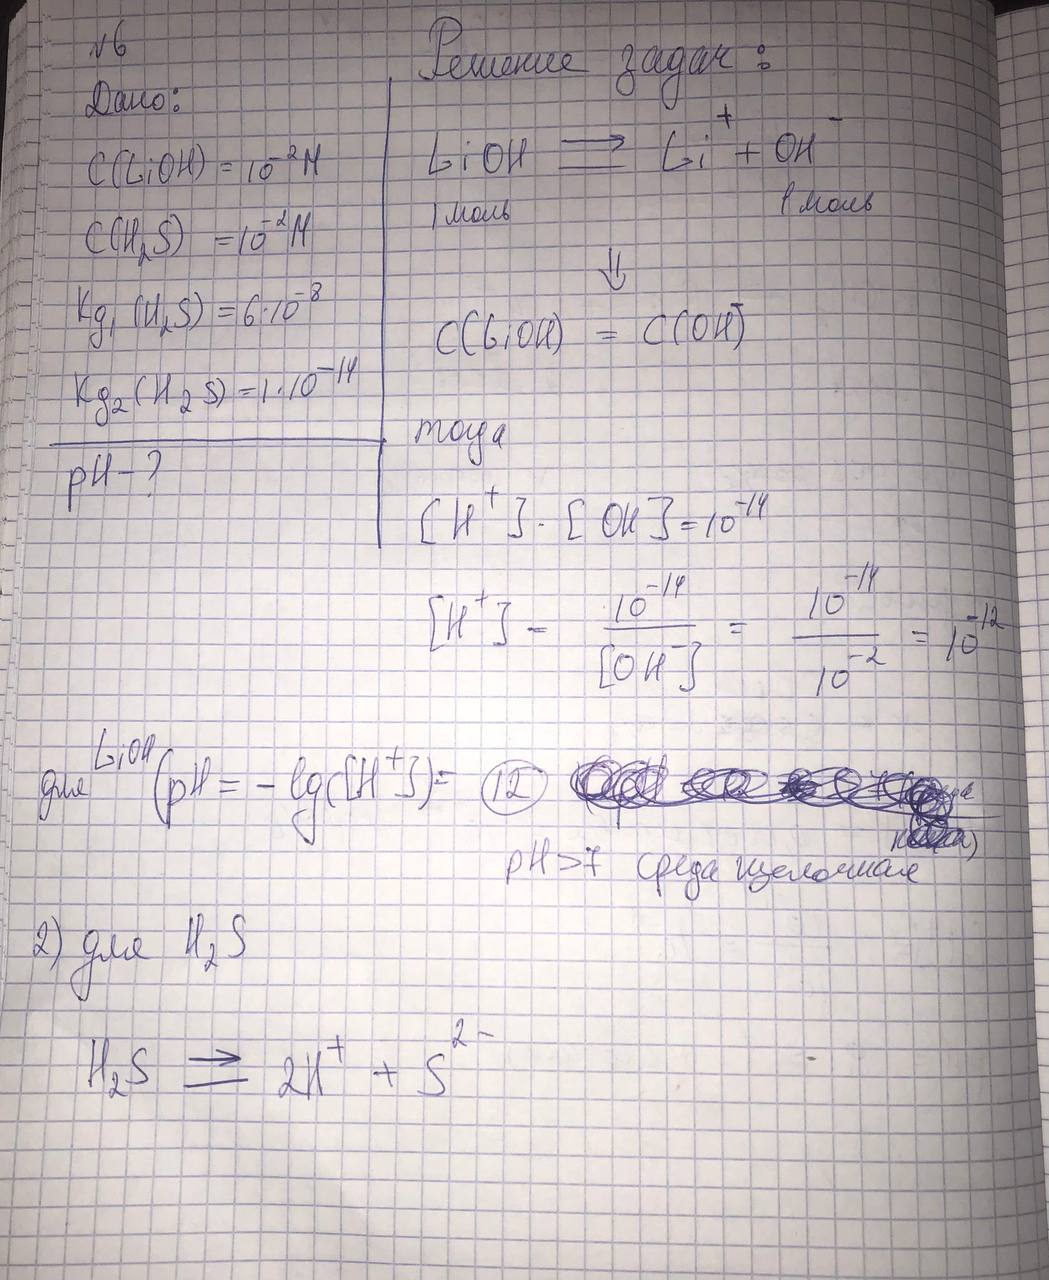 №6
Дано:
C(LiOH) = 10⁻²M
C(H₂S) = 10⁻²M
Kg₁ (H₂S) = 6·10⁻⁸
Kg₂ (H₂S) = 1·10⁻¹⁴
pH - ?
Решение задач:
LiOH ⇌ Li⁺ + OH⁻
1 моль 1 моль
⇓
C(LiOH) = C(OH⁻)
тогда
[H⁺] · [OH⁻] = 10⁻¹⁴
[H⁺] - 10⁻¹⁴/[OH⁻] = 10⁻¹⁴/10⁻² = 10⁻¹²
для LiOH (pH = - lg([H⁺]) = 12
pH > 7 среда щелочная
2) для H₂S
H₂S ⇌ 2H⁺ + S²⁻